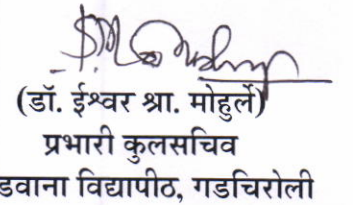 (डॉ. ईश्वर श्रा. मोहुर्ले)
प्रभारी कुलसचिव
डवाना विद्यापीठ, गडचिरोली